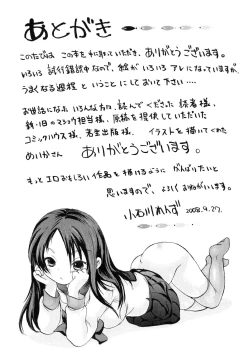 あとがき
このたびは この本を手に取っていただき、ありがとうございます。
いろいろ 試行錯誤中なので、絵がいろいろ アレになっていますが、
うまくなる過程 ということにしておいて下さい……
お世話になった いろんな方々、読んでくださった 読者様、
担当様、原稿を提供していただいた
コミックハウス様、若生出版様、 イラストを描いてくれた
めいかさん ありがとうございます。
もっと エロおもしろい 作品を 描けるように がんばりたいと
思いますので、よろしくお願いします。
小石川れんず 2008.4.27.